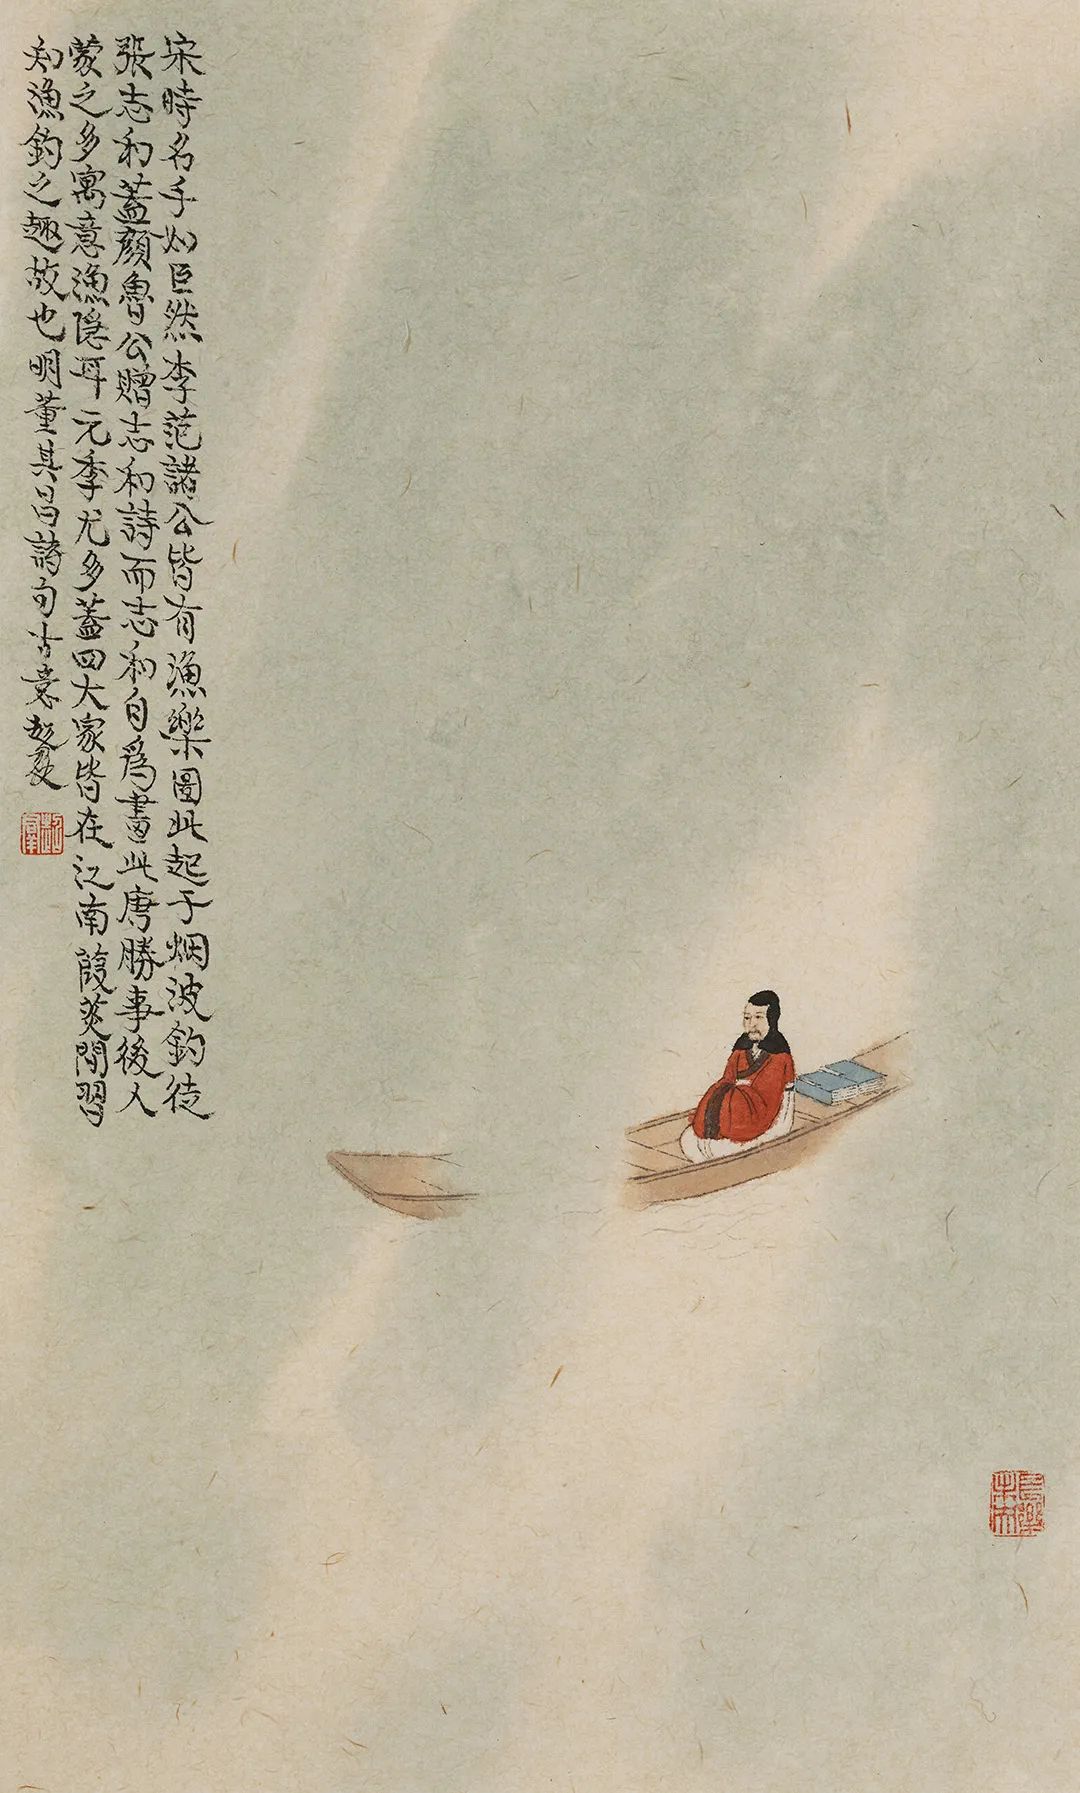 宋時名手如臣然李范諸公皆有漁樂圖此起于烟波釣徒
張志和蓋顏魯公贈志和詩而志和自爲畫此唐勝事後人
蒙之多寓意漁隐耳元季尤多蓋四大家皆在江南葭菼間習
知漁釣之趣故也明董其昌詩句古意